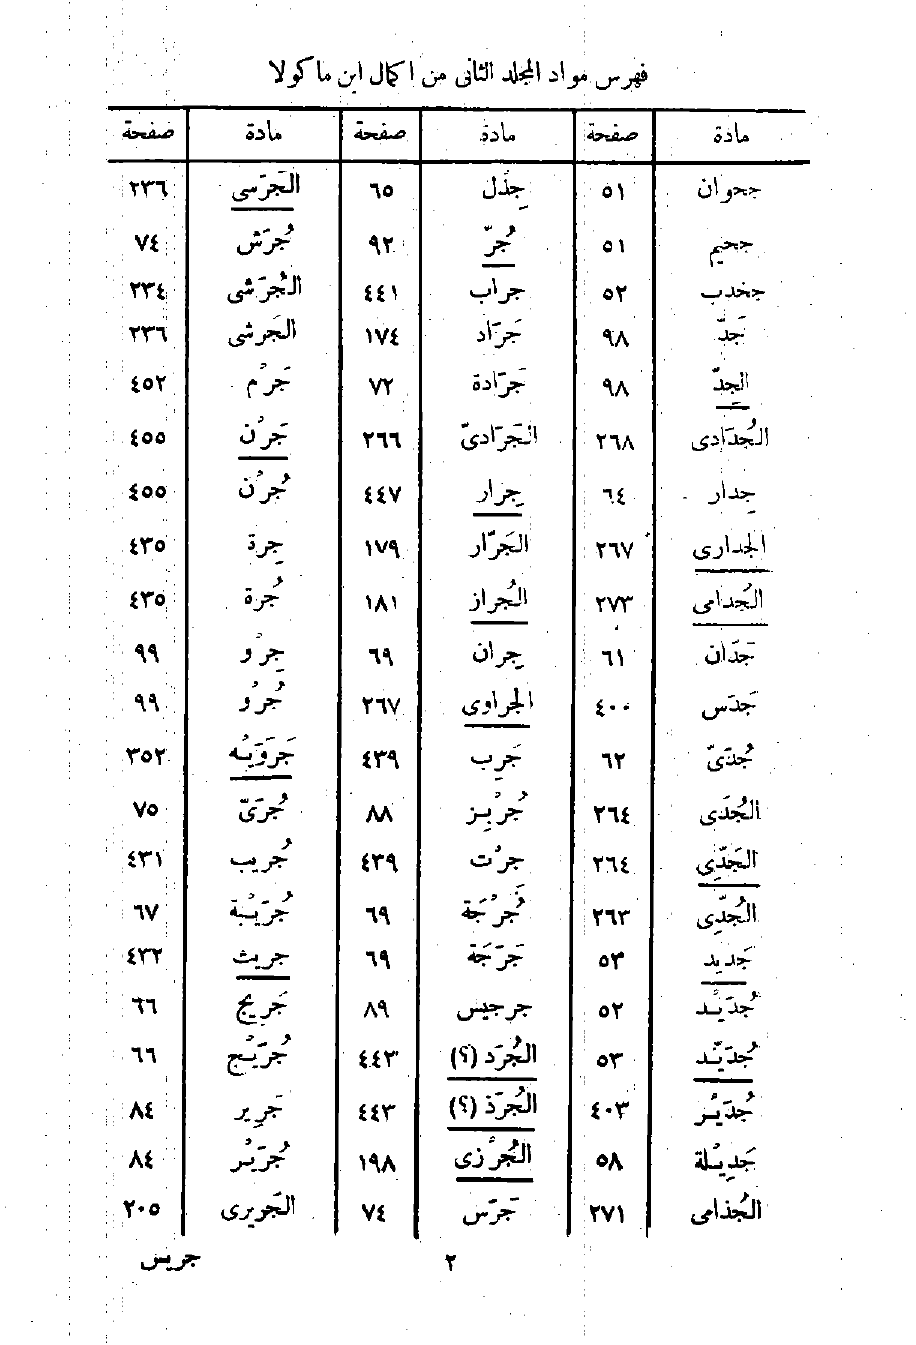 فهرس مواد المجلد الثانى من اكمال ابن ماكولا
مادة صفحة مادة صفحة مادة صفحة
جحوان ٥١ جِذْل ٦٥ الجَرَسى ٢٣٦
جحيم ٥١ جُرّ ٩٢ جُرَش ٧٤
جخدب ٥٢ جراب ٤٤١ الجُرَشى ٢٣٤
جَدّ ٩٨ جَرَّاد ١٧٤ الجَرشى ٢٣٦
الجِدّ ٩٨ جَرَادة ٧٢ جَرْم ٤٥٢
الجُدَادى ٢٦٨ الجَرَادىّ ٢٦٦ جَرْن ٤٥٥
جِدار ٦٤ جِرار ٤٤٧ جُرْن ٤٥٥
الجدارى ٢٦٧ الجَرّار ١٧٩ جِرة ٤٣٥
الجُدامى ٢٧٣ الجُراز ١٨١ جُرة ٤٣٥
جَدّان ٦١ جِران ٦٩ جِرْو ٩٩
جَدَس ٤٠٠ الجراوى ٢٦٧ جُرْو ٩٩
جُدَىّ ٦٢ جَرِب ٤٣٩ جَرَوَيْه ٣٥٢
الجُدَى ٢٦٤ جُرْبز ٨٨ جُرَىّ ٧٥
الجَدِّى ٢٦٤ جرْت ٤٣٩ جُريب ٤٣١
الجُدِّى ٢٦٣ جُرْجَة ٦٩ جُرَيْبة ٦٧
جَديد ٥٣ جَرَجَة ٦٩ جريث ٤٣٢
جُدَيْد ٥٢ جرجيس ٨٩ جَرِيج ٦٦
جُدَيّد ٥٣ الجُرَد (؟) ٤٤٣ جُرَيْج ٦٦
جُدَيْر ٤٠٣ الجُرَذ (؟) ٤٤٣ جَرِير ٨٤
جَدِيْلة ٥٨ الجُرْزى ١٩٨ جُرَيْر ٨٤
الجُذامى ٢٧١ جَرَس ٧٤ الجَريرى ٢٠٥
٢ جريس